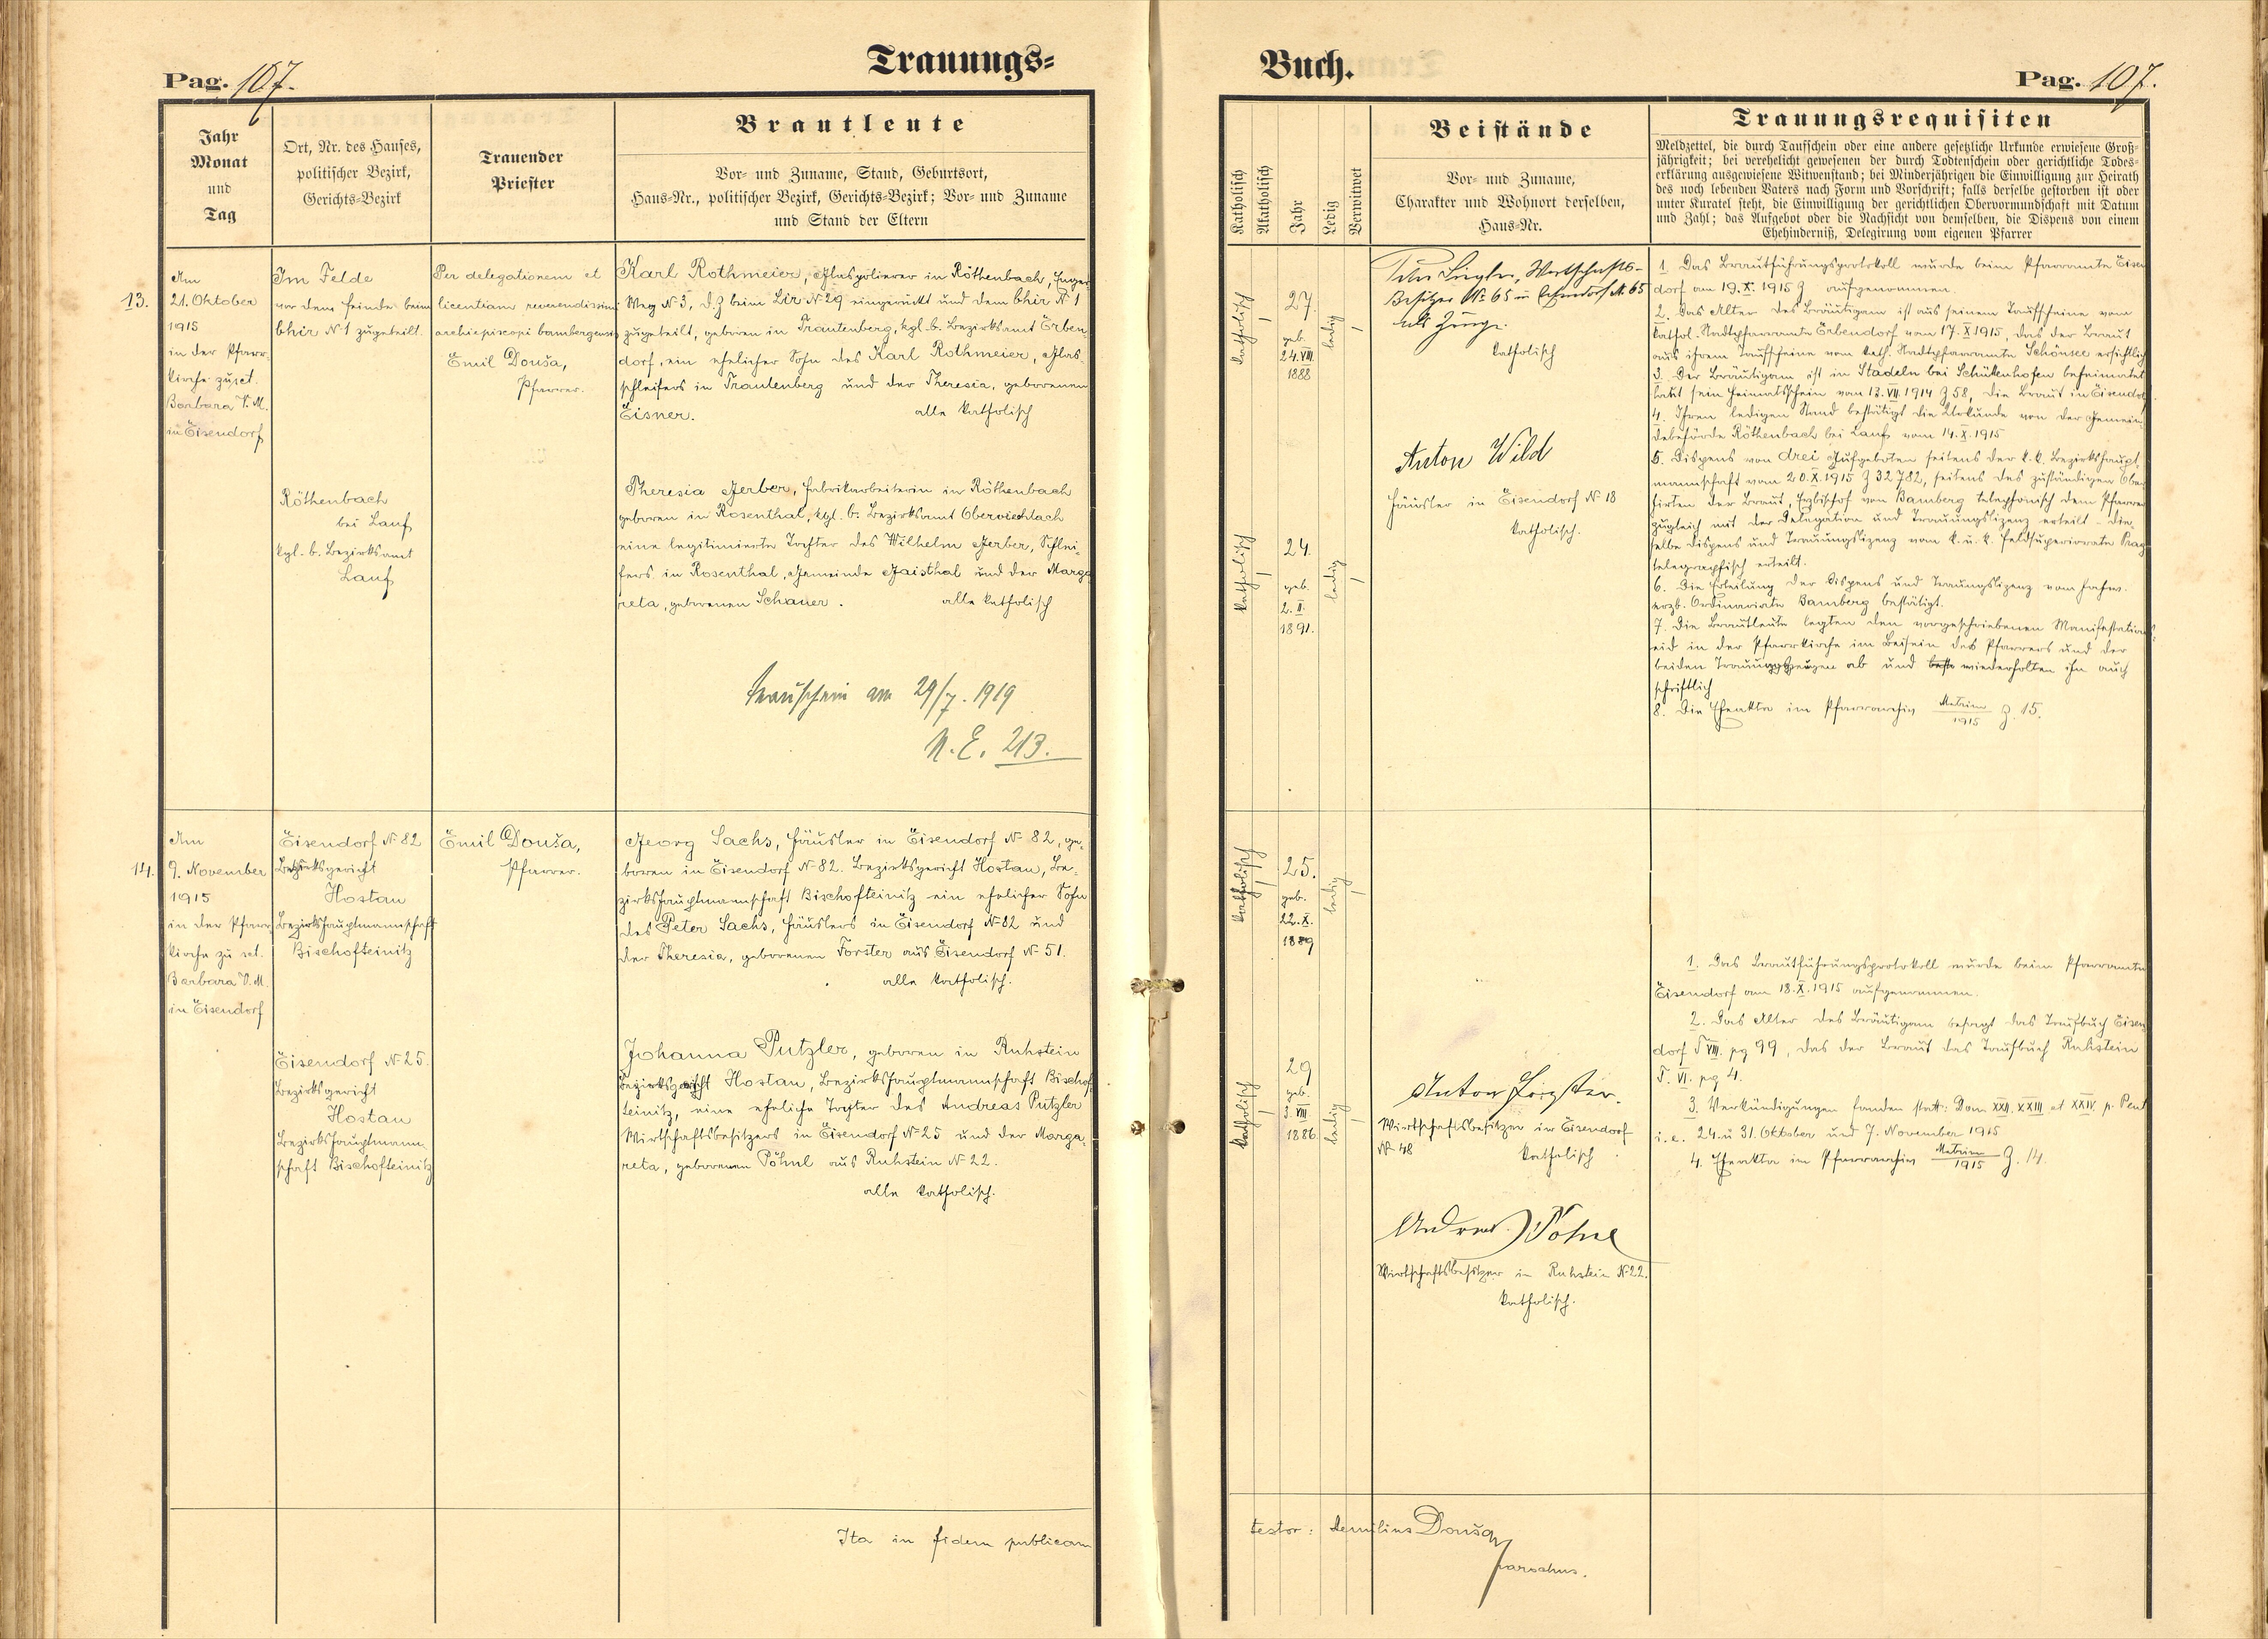 Trauungs-
Pag. 107.
Jahr
Monat
und
Tag
Ort, Nr. des Hauses,
politischer Bezirk,
Gerichts-Bezirk
Trauender
Priester
Brautleute
Vor- und Zuname, Stand, Geburtsort,
Haus-Nr., politischer Bezirk, Gerichts-Bezirk; Vor- und Zuname
und Stand der Eltern
13.
Am
21. Oktober
1915
in der Pfarr-
kirche zu sct.
Barbara V. M.
in Eisendorf
Im Felde
vor dem Feinde beim
bhir № 1 zugeteilt.
Röthenbach
bei Lauf
kgl. b. Bezirksamt
Lauf
Per delegationem et
licentiam reverendissimi
archiepiscopi bambergensis
Emil Douša,
Pfarrer.
Karl Rothmeier, Glaspolierer in Röthenbach,
Weg № 3, d. Z beim Lir № 29 eingerückt und dem bhir № 1
zugeteilt, geboren in Trautenberg, kgl. b. Bezirksamt Erben-
dorf, ein ehelicher Sohn des Karl Rothmeier, Glas-
schleifers in Trautenberg und der Theresia, geborenen
Eisner. alle katholisch
Theresia Gerber, Fabriksarbeiterin in Röthenbach
geboren in Rosenthal, kgl. b. Bezirksamt Oberviechtach
eine legitimierte Tochter des Wilhelm Gerber, Schlei-
fers in Rosenthal, Gemeinde Gaisthal und der Marga
reta, geborenen Schauer. alle katholisch
Trauschein am 29/7. 1919
N. E. 213.
14.
Am
9. November
1915
in der Pfarr-
kirche zu sct.
Barbara V. M.
in Eisendorf
Eisendorf № 82
Bezirksgericht
Hostau
Bezirkshauptmannschaft
Bischofteinitz
Eisendorf № 25.
Bezirksgericht
Hostau
Bezirkshauptmann-
schaft Bischofteinitz
Emil Douša,
Pfarrer.
Georg Sachs, Häusler in Eisendorf № 82, ge-
boren in Eisendorf № 82. Bezirksgericht Hostau, Be-
zirkshauptmannschaft Bischofteinitz ein ehelicher Sohn
des Peter Sachs, Häuslers in Eisendorf № 82 und
der Theresia, geborenen Forster aus Eisendorf № 51.
alle katholisch.
Johanna Putzler, geboren in Ruhstein
Bezirksgericht Hostau, Bezirkshauptmannschaft Bischof
teinitz, eine eheliche Tochter des Andreas Putzler
Wirtschaftsbesitzers in Eisendorf № 25 und der Marga-
reta, geborenen Pöhnl aus Ruhstein № 22.
alle katholisch.
Ita in fidem publicam
Buch.
Pag. 107.
Katholisch
Akatholisch
Jahr
Ledig
Verwitwet
Beistände
Vor- und Zuname,
Charakter und Wohnort derselben,
Haus-Nr.
Trauungsrequisiten
Meldzettel, die durch Taufschein oder eine andere gesetzliche Urkunde erwiesene Groß-
jährigkeit; bei verehelicht gewesenen der durch Todtenschein oder gerichtliche Todes-
erklärung ausgewiesene Witwenstand; bei Minderjährigen die Einwilligung zur Heirath
des noch lebenden Vaters nach Form und Vorschrift; falls derselbe gestorben ist oder
unter Kuratel steht, die Einwilligung der gerichtlichen Obervormundschaft mit Datum
und Zahl; das Aufgebot oder die Nachsicht von demselben, die Dispens von einem
Ehehinderniß, Delegirung vom eigenen Pfarrer
katholisch
27
geb.
24. VIII.
1888
ledig
katholisch
24.
geb.
2. II.
1891.
ledig
Wirtschafts-
Besitzer № 65 in Eisendorf № 65
als Zeuge.
katholisch
Anton Wild
Häusler in Eisendorf № 18
katholisch.
1. Das Brautführungsprotokoll wurde beim Pfarramte Eisen
dorf am 19. X. 1915 aufgenommen.
2. Das Alter des Bräutigam ist aus seinem Taufscheine vom
kathol. Stadtpfarramte Erbendorf vom 17. X 1915, das der Braut
aus ihrem Taufscheine vom kath. Stadtpfarramte Schönsee ersichtlich
3. Der Bräutigam ist in Stadeln bei Schüttenhofen beheimatet
laut sein Heimatschein vom 13. VII. 1914 Z 58, die Braut in Eisendorf
4. Ihren ledigen Stand bestätigt die Urkunde von der Gemein-
debehörde Röthenbach bei Lauf vom 14. X. 1915
5. Dispens von drei Aufgeboten seitens der k. k. Bezirkshaupt-
mannschaft vom 20. X. 1915 Z 32782, seitens des zuständigen Ober
hirten der Braut, Erzbischof von Bamberg telephonisch dem Pfarrer
zugleich mit der Delegation und Trauungslizenz erteilt - die-
selbe Dispens und Trauungslizenz vom k. u. k. Feldsuperiorate Prag
telegraphisch erteilt.
6. Die Erteilung der Dispens und Trauungslizenz vom hochw.
erzb. Ordinariate Bamberg bestätigt.
7. Die Brautleute legten den vorgeschriebenen Manifestations-
eid in der Pfarrkirche im Beisein des Pfarrers und der
beiden Trauungszeugen ab und wiederholten ihn auch
schriftlich
8. Die Eheakta im Pfarrarchiv Matrim/1915 Z. 15.
katholisch
25.
geb.
22. X.
1889
ledig
katholisch
29
geb.
3. VIII
1886.
ledig
Anton Forster.
Wirtschaftsbesitzer in Eisendorf
№ 48 katholisch.
Andreas Pöhnl
Wirtschaftsbesitzer in Ruhstein № 22.
katholisch.
1. Das Brautführungsprotokoll wurde beim Pfarramte
Eisendorf am 18. X. 1915 aufgenommen.
2. Das Alter des Bräutigam besagt das Taufbuch Eisen
dorf T VIII. pg 99, das der Braut das Taufbuch Ruhstein
T. VI. pg 4.
3. Verkündigungen fanden statt: Dom XXII. XXIII et XXIV. p. Pent
i. e. 24. u 31. Oktober und 7. November 1915
4. Eheakta im Pfarrarchiv Matrim/1915 Z. 14.
testor: Aemilius Douša
parochus.